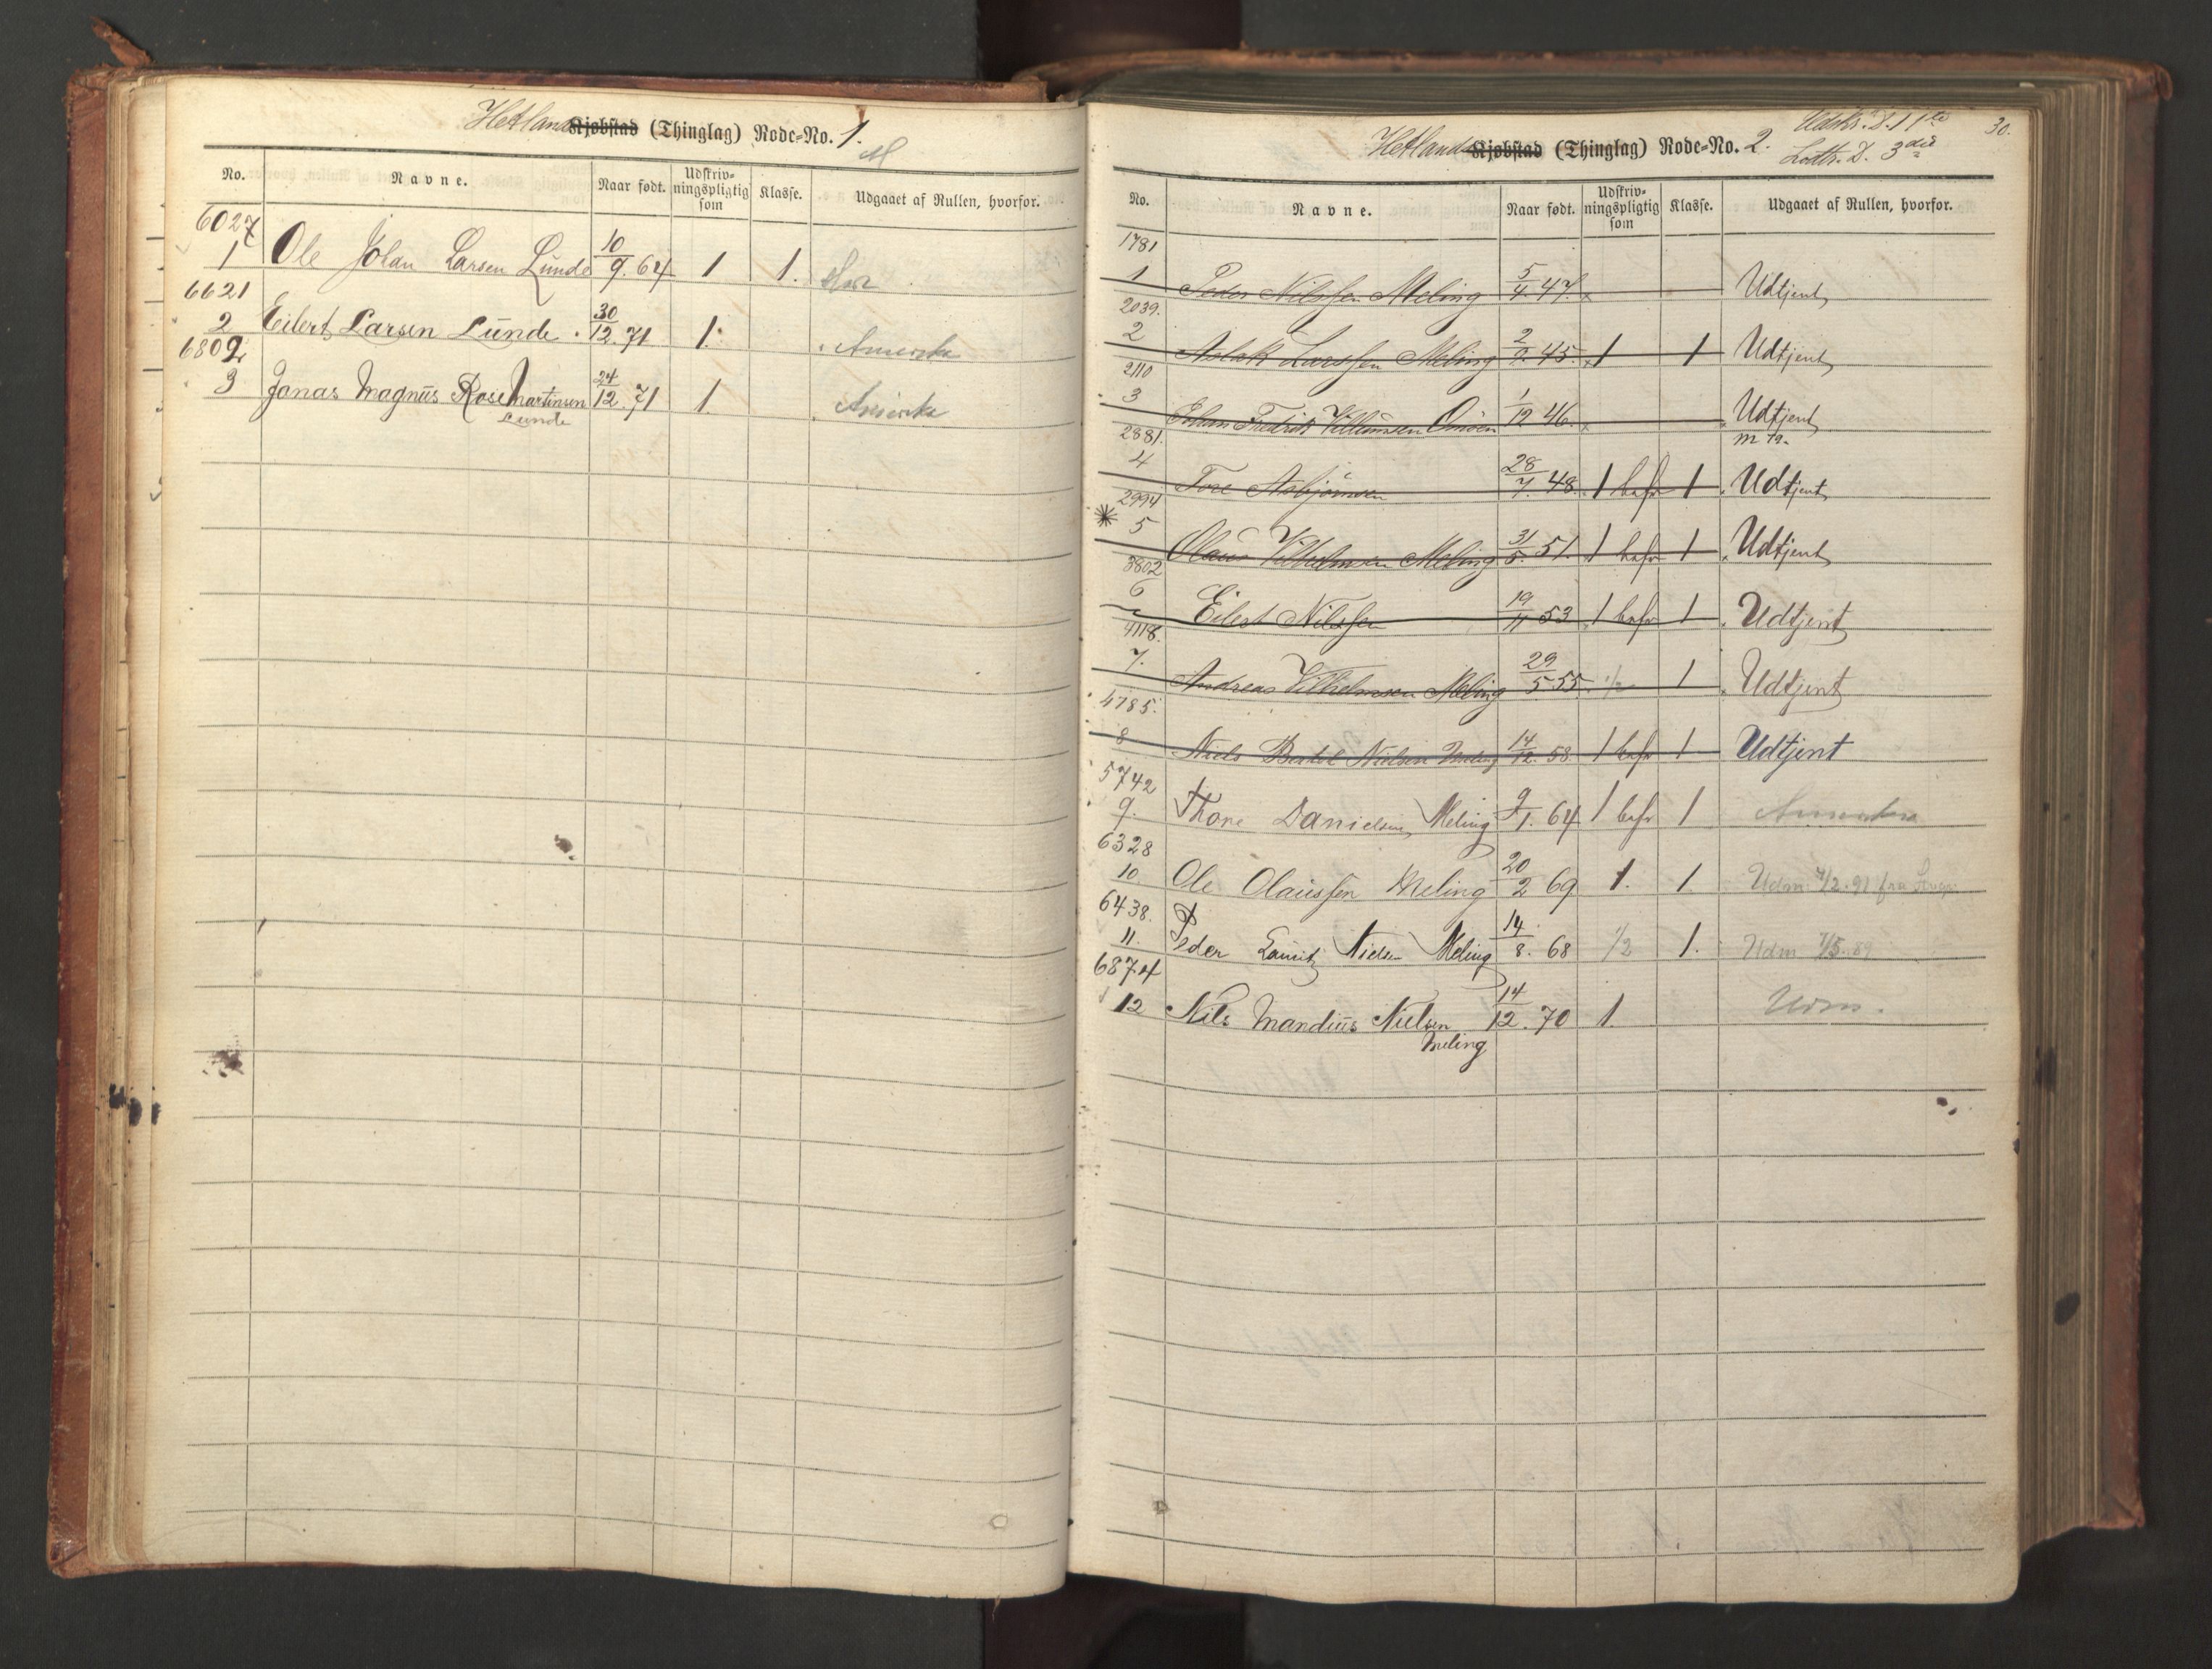 Hetland Kjøbstad (Thinglag) Rode-No. 1.
No. Navne. Naar født. Udskrivningspligtig som Klasse. Udgaaet af Rullen, hvorfor.
6027
1 Ole Johan Larsen Lunde 10/9. 64 1 1.
6621
2 Eilert Larsen Lunde. 30/12. 71 1. Amerika
6802
3 Jonas Magnus Rose Martinsen 24/12. 71 1. Amerika
Lunde
30.
Udskr. D. 11te
Hetland Kjøbstad (Thinglag) Rode-No. 2. Lodtr. D. 3die
No. Navne. Naar født. Udskrivningspligtig som Klasse. Udgaaet af Rullen, hvorfor.
1781
1 Peder Nilssen Meling 5/4. 47. Udtjent
2039.
2 Aslak Larssen Meling 2/9. 45. 1 1 Udtjent
2110
3 Fredrik Villumsen 1/12 46. Udtjent
2881.
4 Tore Asbjörnsen 28/7. 48. 1 befr 1 Udtjent
2994
* 5 Olaus Vilhelmsen Meling 31/5. 51. 1 befr 1 Udtjent
3802
6 Eilert Nilssen 19/11 53 1 befr 1 Udtjent
4118.
7. Andreas Vilhelmsen Meling 29/5 55. 1/2 1 Udtjent
4785.
8 Niels Bertel Nielsen Meling 14/12. 58. 1 befr 1 Udtjent
5742
9. Thore Danielsen Meling 9/1. 64 1 befr 1 Amerika
6328
10 Ole Olaussen Meling 20/2 69 1. 1. Udm 4/2. 91 fra
6438.
11. Peder Lauritz Nielsen Meling 14/8. 68 1/2 1. Udm 7/5. 89
6874
12 Nils Mandius Nielsen 14/12. 70 1. Udm.
Meling